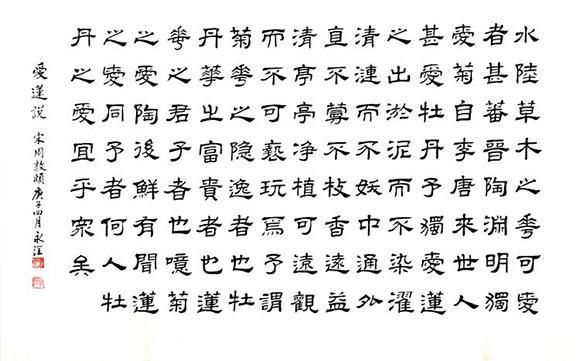 水陸草木之華可愛
者甚蕃晉陶淵明獨
愛菊自李唐來世人
甚愛牡丹予獨愛蓮
之出於泥而不染濯
清漣而不妖中通外
直不蔓不枝香遠益
清亭亭淨植可遠觀
而不可褻玩焉予謂
菊華之隱逸者也牡
丹華之富貴者也蓮
華之君子者也噫菊
之愛陶後鮮有聞蓮
之愛同予者何人牡
丹之愛宜乎衆矣
愛蓮説 宋周敦頤庚子四月永